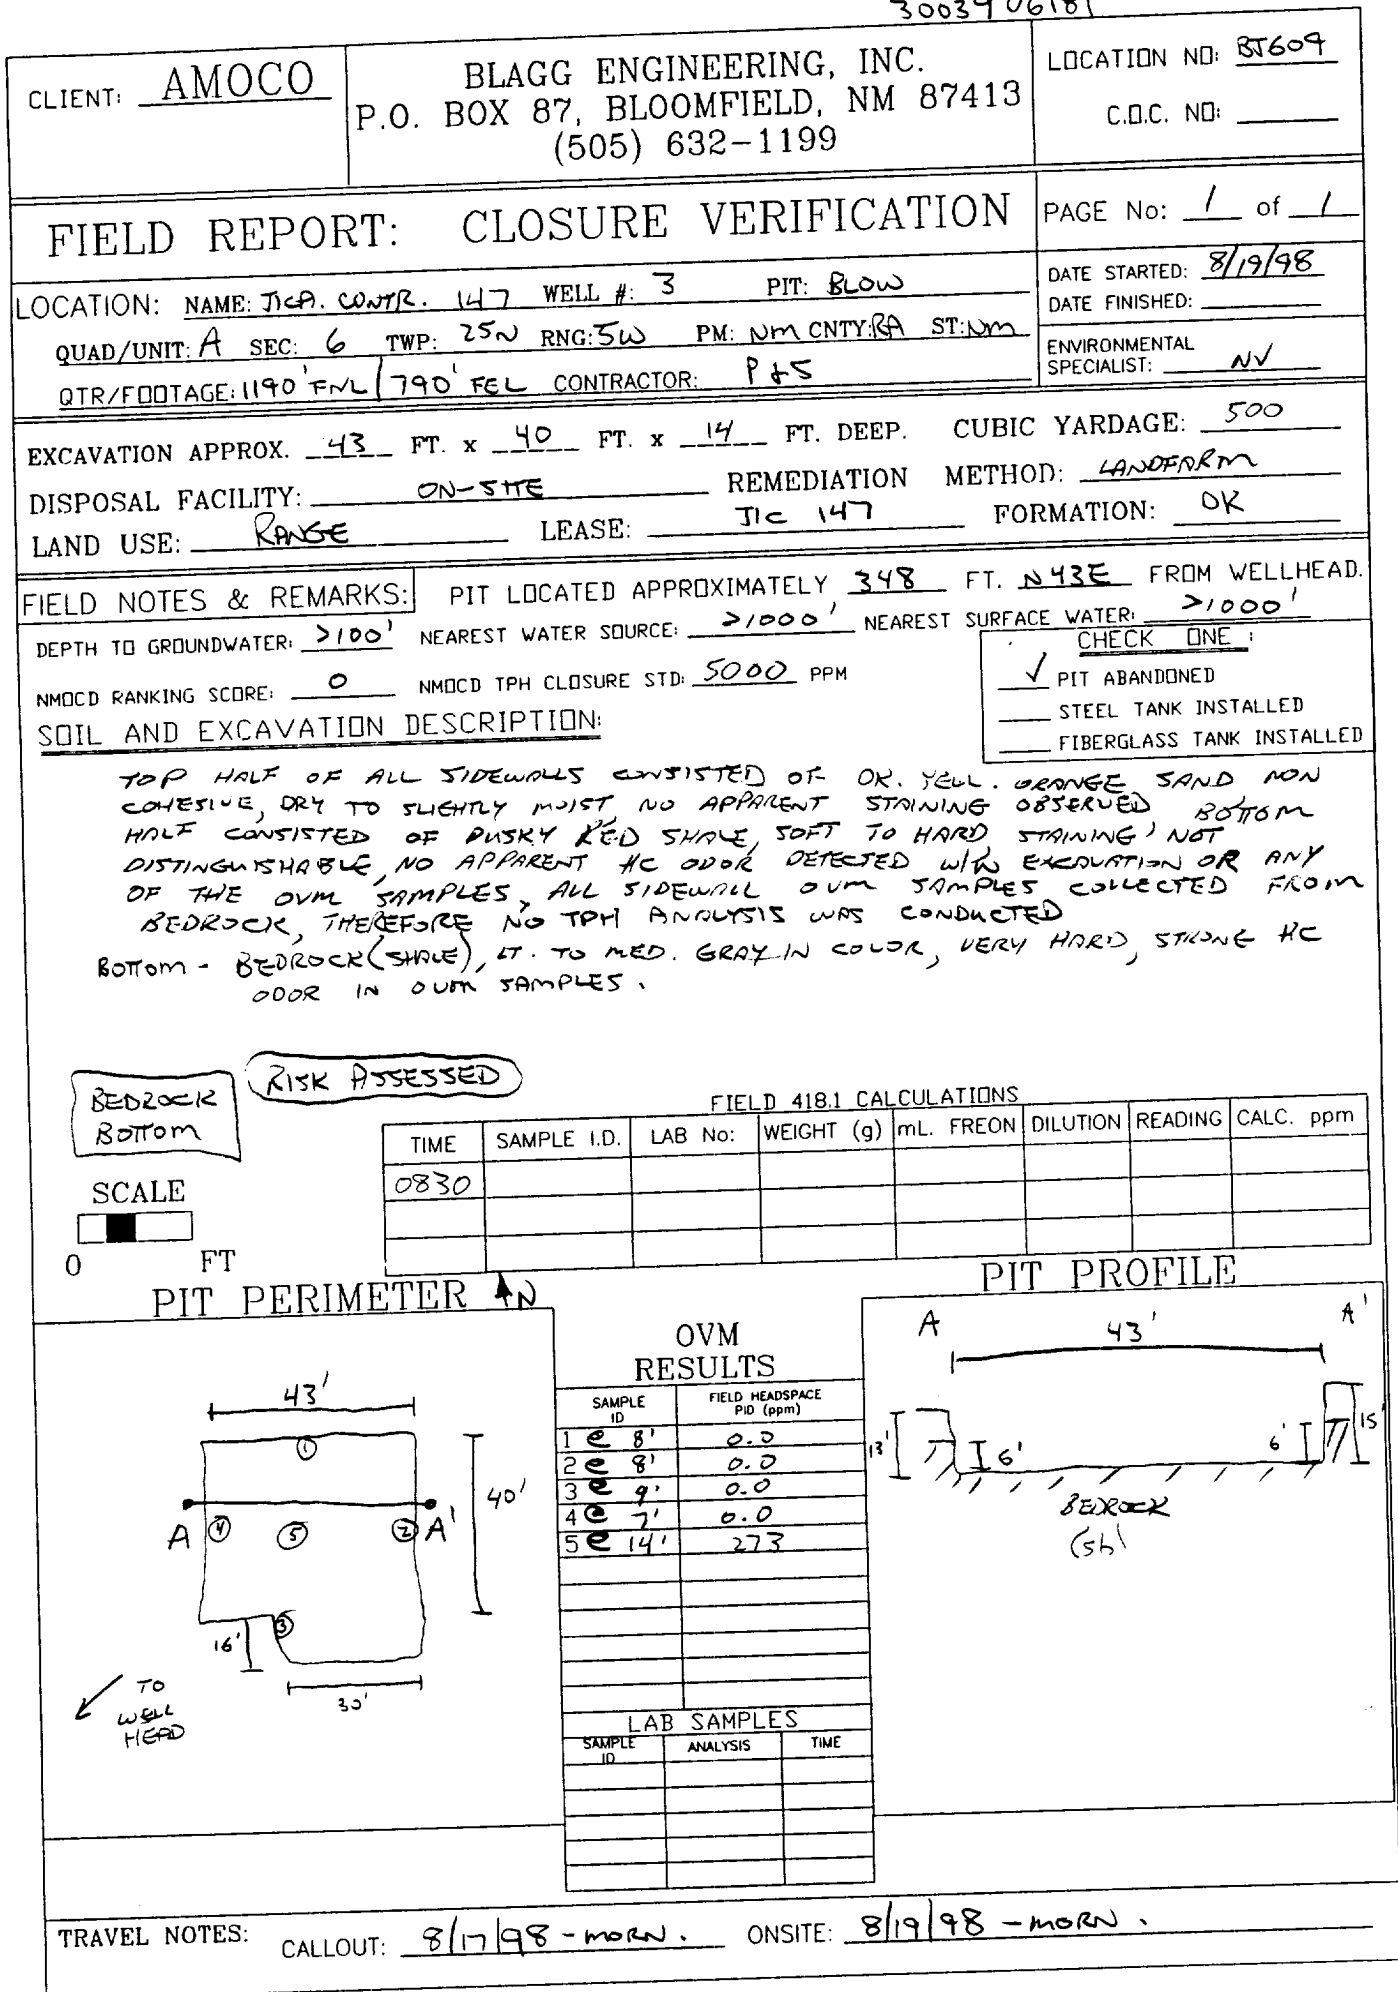 3003906181
CLIENT: AMOCO
BLAGG ENGINEERING, INC.
P.O. BOX 87, BLOOMFIELD, NM 87413
(505) 632-1199
LOCATION NO: BJ609
C.O.C. NO:
FIELD REPORT: CLOSURE VERIFICATION
PAGE No: 1 of 1
LOCATION: NAME: JICA. CONTR. 147 WELL #: 3 PIT: BLOW
QUAD/UNIT: A SEC: 6 TWP: 25N RNG: 5W PM: NM CNTY: RA ST: NM
QTR/FOOTAGE: 1190' FNL / 790' FEL CONTRACTOR: P+S
DATE STARTED: 8/19/98
DATE FINISHED:
ENVIRONMENTAL
SPECIALIST: NV
EXCAVATION APPROX. 43 FT. x 40 FT. x 14 FT. DEEP. CUBIC YARDAGE: 500
DISPOSAL FACILITY: ON-SITE REMEDIATION METHOD: LANDFARM
LAND USE: RANGE LEASE: JIC 147 FORMATION: DK
FIELD NOTES & REMARKS: PIT LOCATED APPROXIMATELY 348 FT. N43E FROM WELLHEAD.
DEPTH TO GROUNDWATER: >100' NEAREST WATER SOURCE: >1000' NEAREST SURFACE WATER: >1000'
NMOCD RANKING SCORE: 0 NMOCD TPH CLOSURE STD: 5000 PPM
CHECK ONE :
✓ PIT ABANDONED
STEEL TANK INSTALLED
FIBERGLASS TANK INSTALLED
SOIL AND EXCAVATION DESCRIPTION:
TOP HALF OF ALL SIDEWALLS CONSISTED OF DK. YELL. ORANGE SAND NON
COHESIVE, DRY TO SLIGHTLY MOIST, NO APPARENT STAINING OBSERVED, BOTTOM
HALF CONSISTED OF DUSKY RED SHALE, SOFT TO HARD, STAINING NOT
DISTINGUISHABLE, NO APPARENT HC ODOR DETECTED W/IN EXCAVATION OR ANY
OF THE OVM SAMPLES, ALL SIDEWALL OVM SAMPLES COLLECTED FROM
BEDROCK, THEREFORE NO TPH ANALYSIS WAS CONDUCTED
BOTTOM - BEDROCK (SHALE), LT. TO MED. GRAY IN COLOR, VERY HARD, STRONG HC
ODOR IN OVM SAMPLES.
BEDROCK
BOTTOM
RISK ASSESSED
FIELD 418.1 CALCULATIONS
TIME SAMPLE I.D. LAB No: WEIGHT (g) mL. FREON DILUTION READING CALC. ppm
0830
SCALE
0 FT
PIT PERIMETER N
43'
1
40'
A 4 5 2 A'
3
16'
30'
TO
WELL
HEAD
OVM
RESULTS
SAMPLE
ID
FIELD HEADSPACE
PID (ppm)
1 @ 8' 0.0
2 @ 8' 0.0
3 @ 9' 0.0
4 @ 7' 0.0
5 @ 14' 273
LAB SAMPLES
SAMPLE
ID
ANALYSIS TIME
PIT PROFILE
A 43' A'
13' 6' 6' 15'
BEDROCK
(sh)
TRAVEL NOTES: CALLOUT: 8/17/98 - MORN. ONSITE: 8/19/98 - MORN.